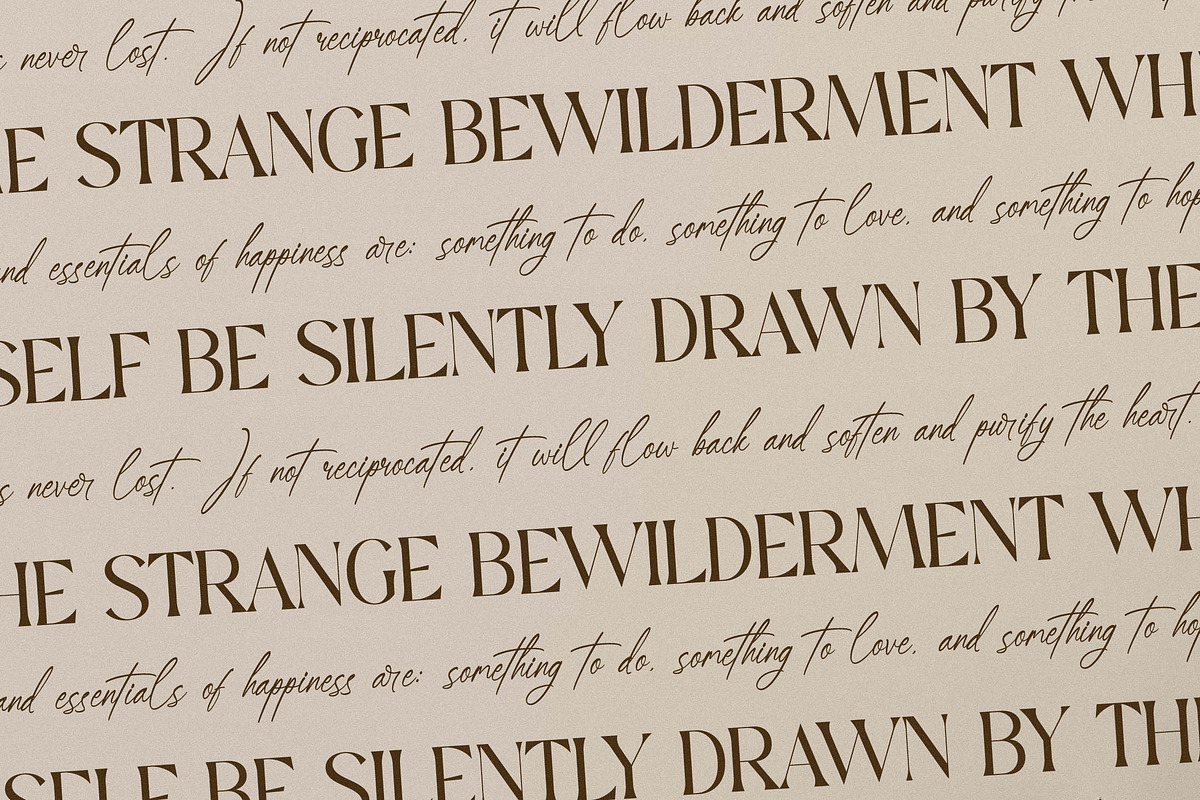 never lost. If not reciprocated, it will flow back and soften and purify
E STRANGE BEWILDERMENT WH
and essentials of happiness are: something to do, something to love, and something to hop
SELF BE SILENTLY DRAWN BY THE
s never lost. If not reciprocated, it will flow back and soften and purify the heart.
HE STRANGE BEWILDERMENT WH
and essentials of happiness are: something to do, something to love, and something to ho
SELF BE SILENTLY DRAWN BY THE